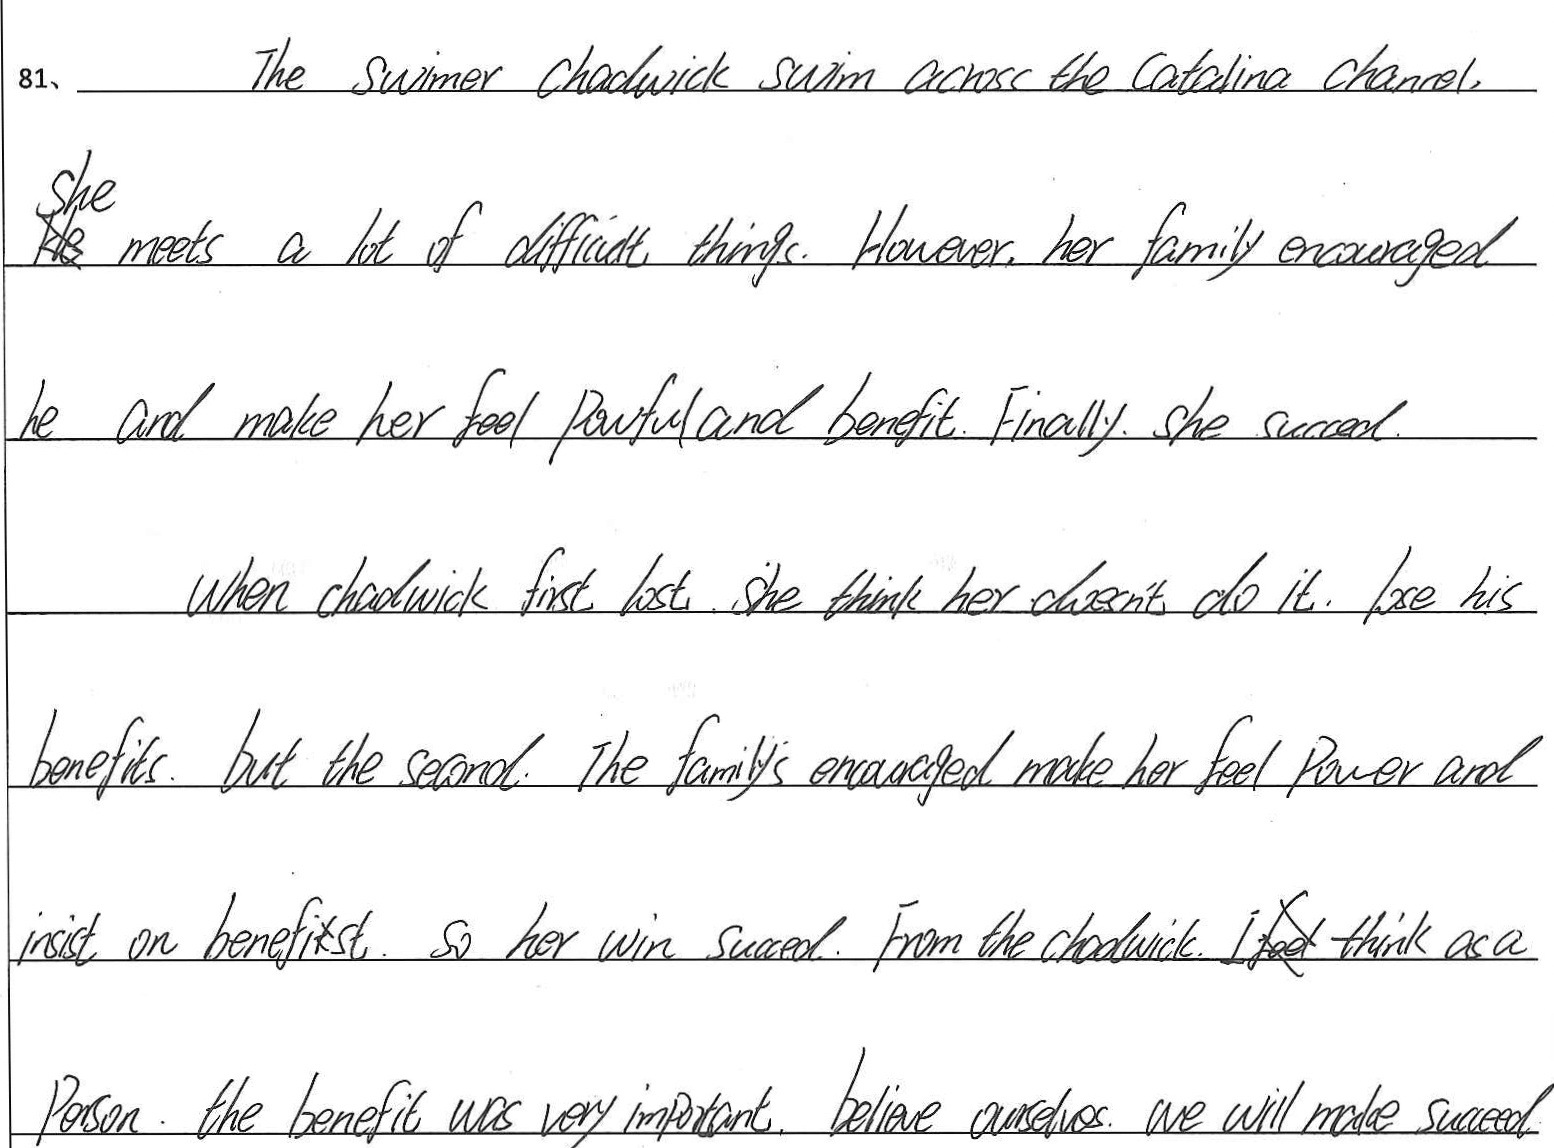 81、 The swimer chadwick swim across the Catalina channel.
she
meets a lot of difficult things. However, her family encouraged
he and make her feel powful and benefit. Finally. she succeed.
When chadwick first lost. she think her doesn't do it. lose his
benefits. but the second. The family's encouraged make her feel power and
insist on benefitst. so her win succeed. From the chadwick. I think as a
Person. the benefit was very important. believe ourselves. we will make succeed